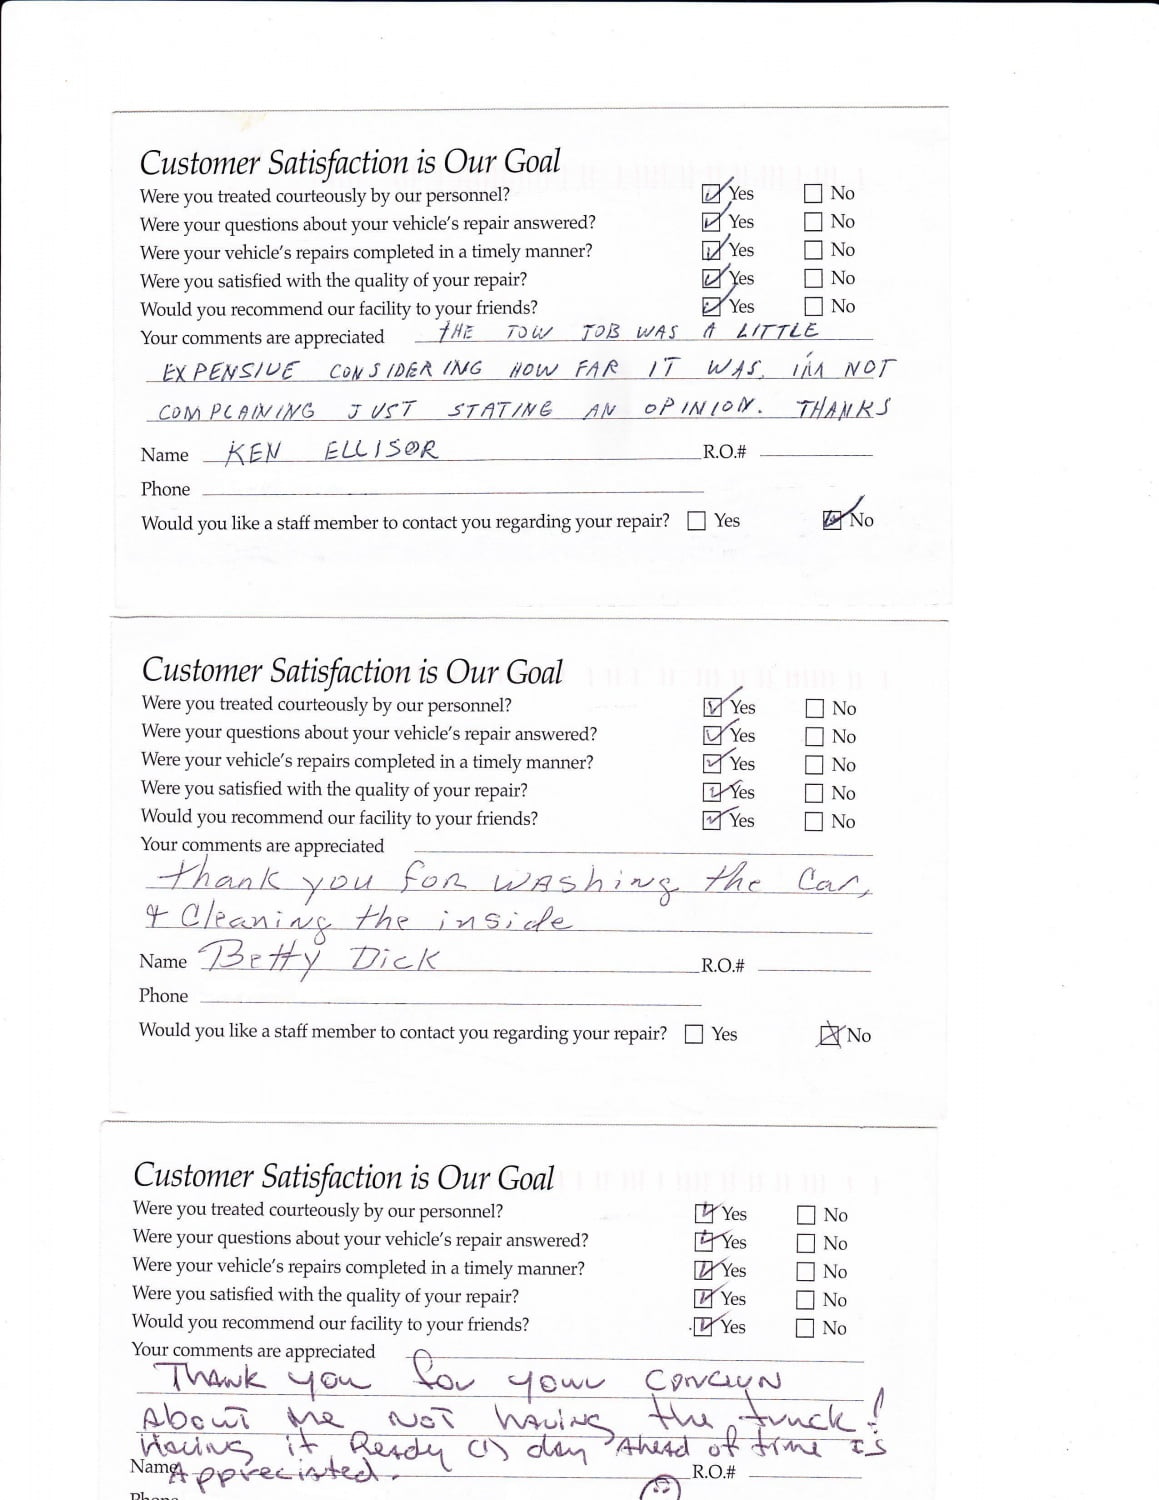 Customer Satisfaction is Our Goal
Were you treated courteously by our personnel? Yes No
Were your questions about your vehicle's repair answered? Yes No
Were your vehicle's repairs completed in a timely manner? Yes No
Were you satisfied with the quality of your repair? Yes No
Would you recommend our facility to your friends? Yes No
Your comments are appreciated THE TOW JOB WAS A LITTLE
EXPENSIVE CONSIDERING HOW FAR IT WAS. I'M NOT
COMPLAINING JUST STATING AN OPINION. THANKS
Name KEN ELLISOR R.O.#
Phone
Would you like a staff member to contact you regarding your repair? Yes No
Customer Satisfaction is Our Goal
Were you treated courteously by our personnel? Yes No
Were your questions about your vehicle's repair answered? Yes No
Were your vehicle's repairs completed in a timely manner? Yes No
Were you satisfied with the quality of your repair? Yes No
Would you recommend our facility to your friends? Yes No
Your comments are appreciated
Thank you for washing the car,
& Cleaning the inside
Name Betty Dick R.O.#
Phone
Would you like a staff member to contact you regarding your repair? Yes No
Customer Satisfaction is Our Goal
Were you treated courteously by our personnel? Yes No
Were your questions about your vehicle's repair answered? Yes No
Were your vehicle's repairs completed in a timely manner? Yes No
Were you satisfied with the quality of your repair? Yes No
Would you recommend our facility to your friends? Yes No
Your comments are appreciated
Thank you for your concern
About me not having the truck!
Having it Ready (1) day Ahead of time Is
Name Appreciated. R.O.#
Phone